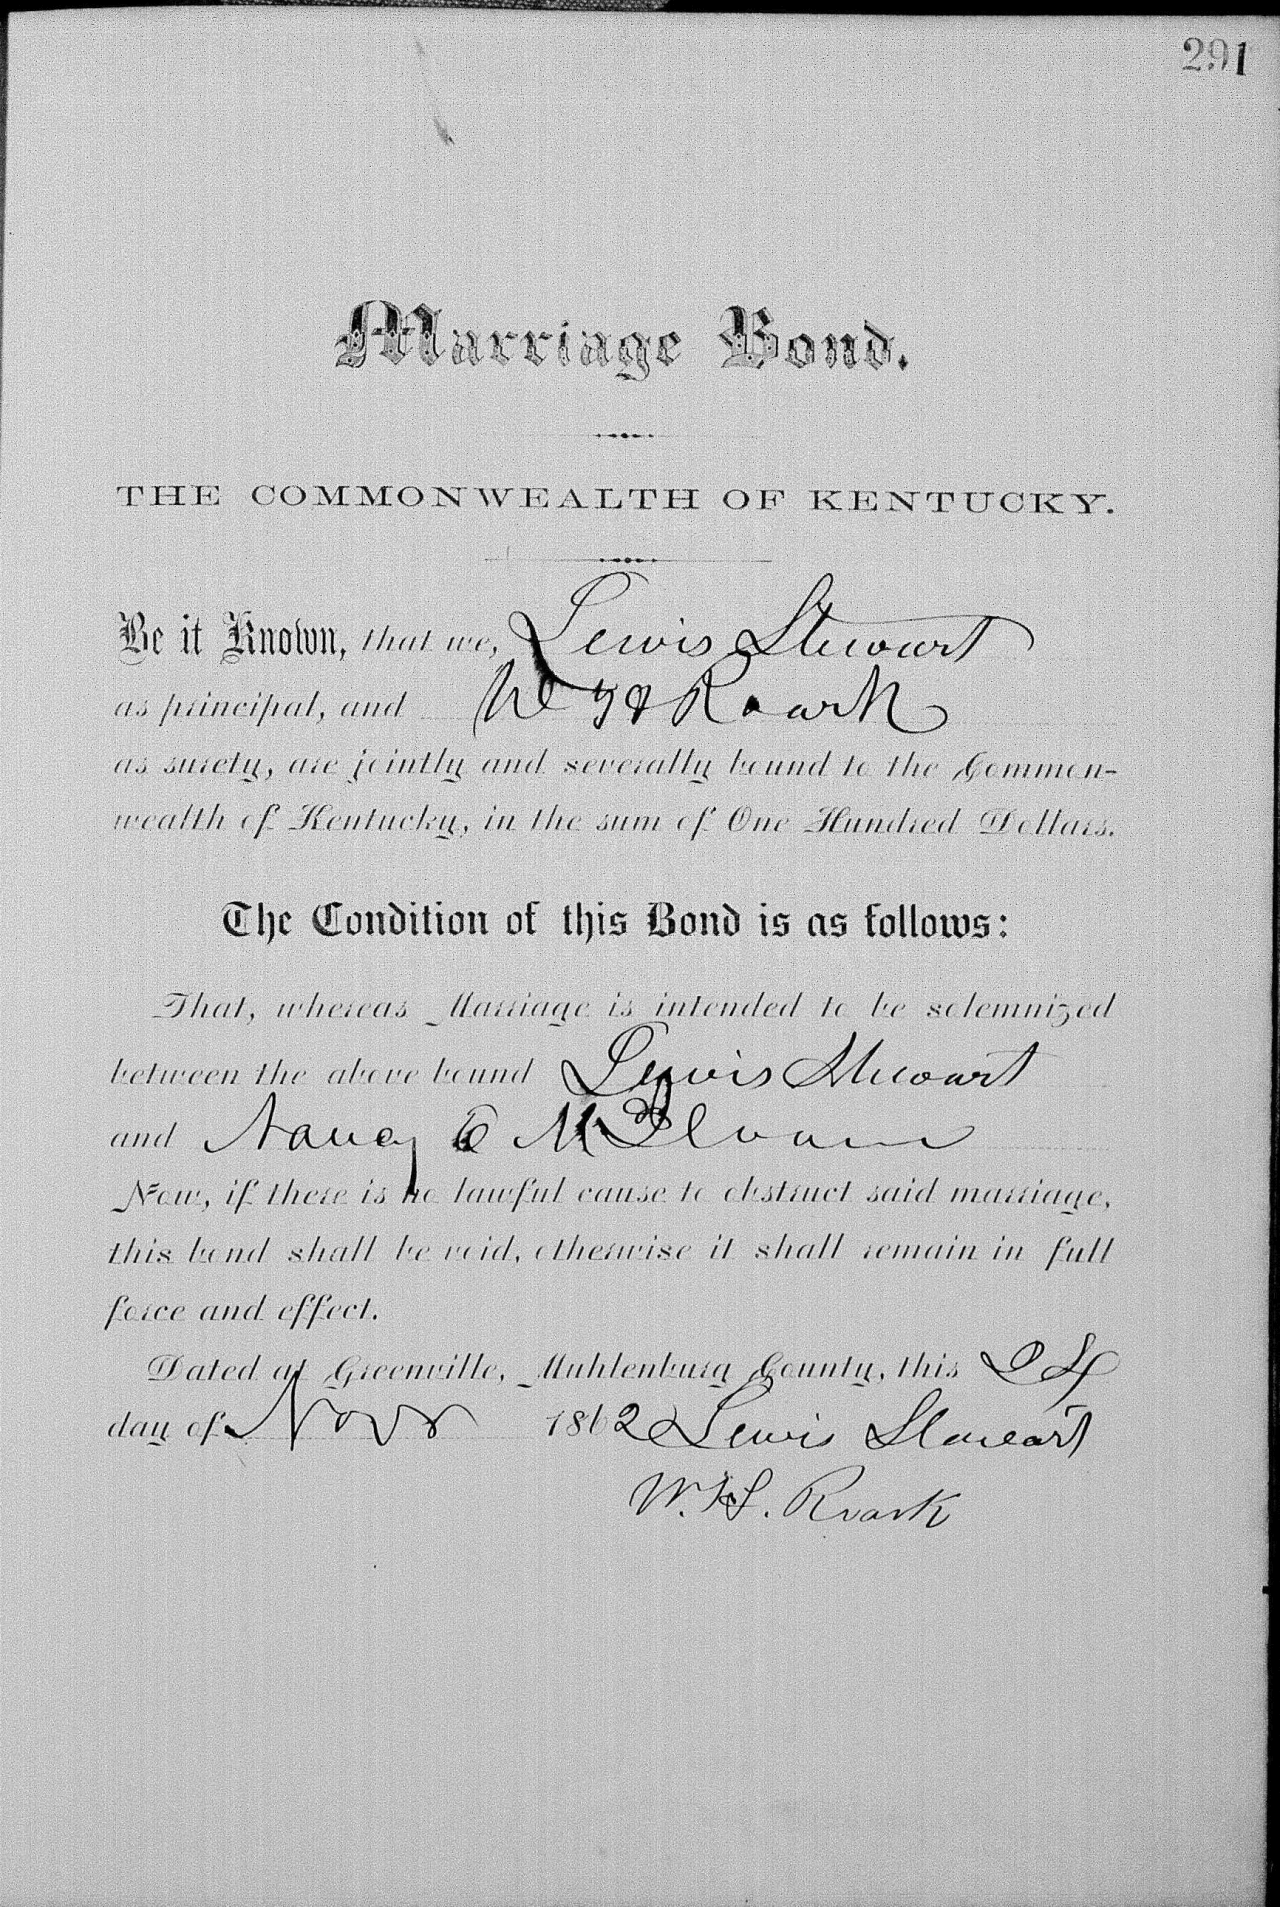 291
Marriage Bond.
THE COMMONWEALTH OF KENTUCKY.
Be it Known, that we, Lewis Stewart
as principal, and W Roark
as surety, are jointly and severally bound to the Common-
wealth of Kentucky, in the sum of One Hundred Dollars.
The Condition of this Bond is as follows:
That, whereas Marriage is intended to be solemnized
between the above bound Lewis Stewart
and Nancy
Now, if there is no lawful cause to obstruct said marriage,
this bond shall be void, otherwise it shall remain in full
force and effect.
Dated at Greenville, Muhlenburg County, this 24
day of Novr 1862 Lewis Stewart
W. Roark